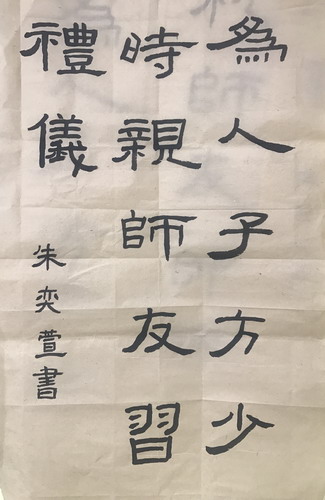 為人子方少
時親師友習
禮儀
朱奕萱書